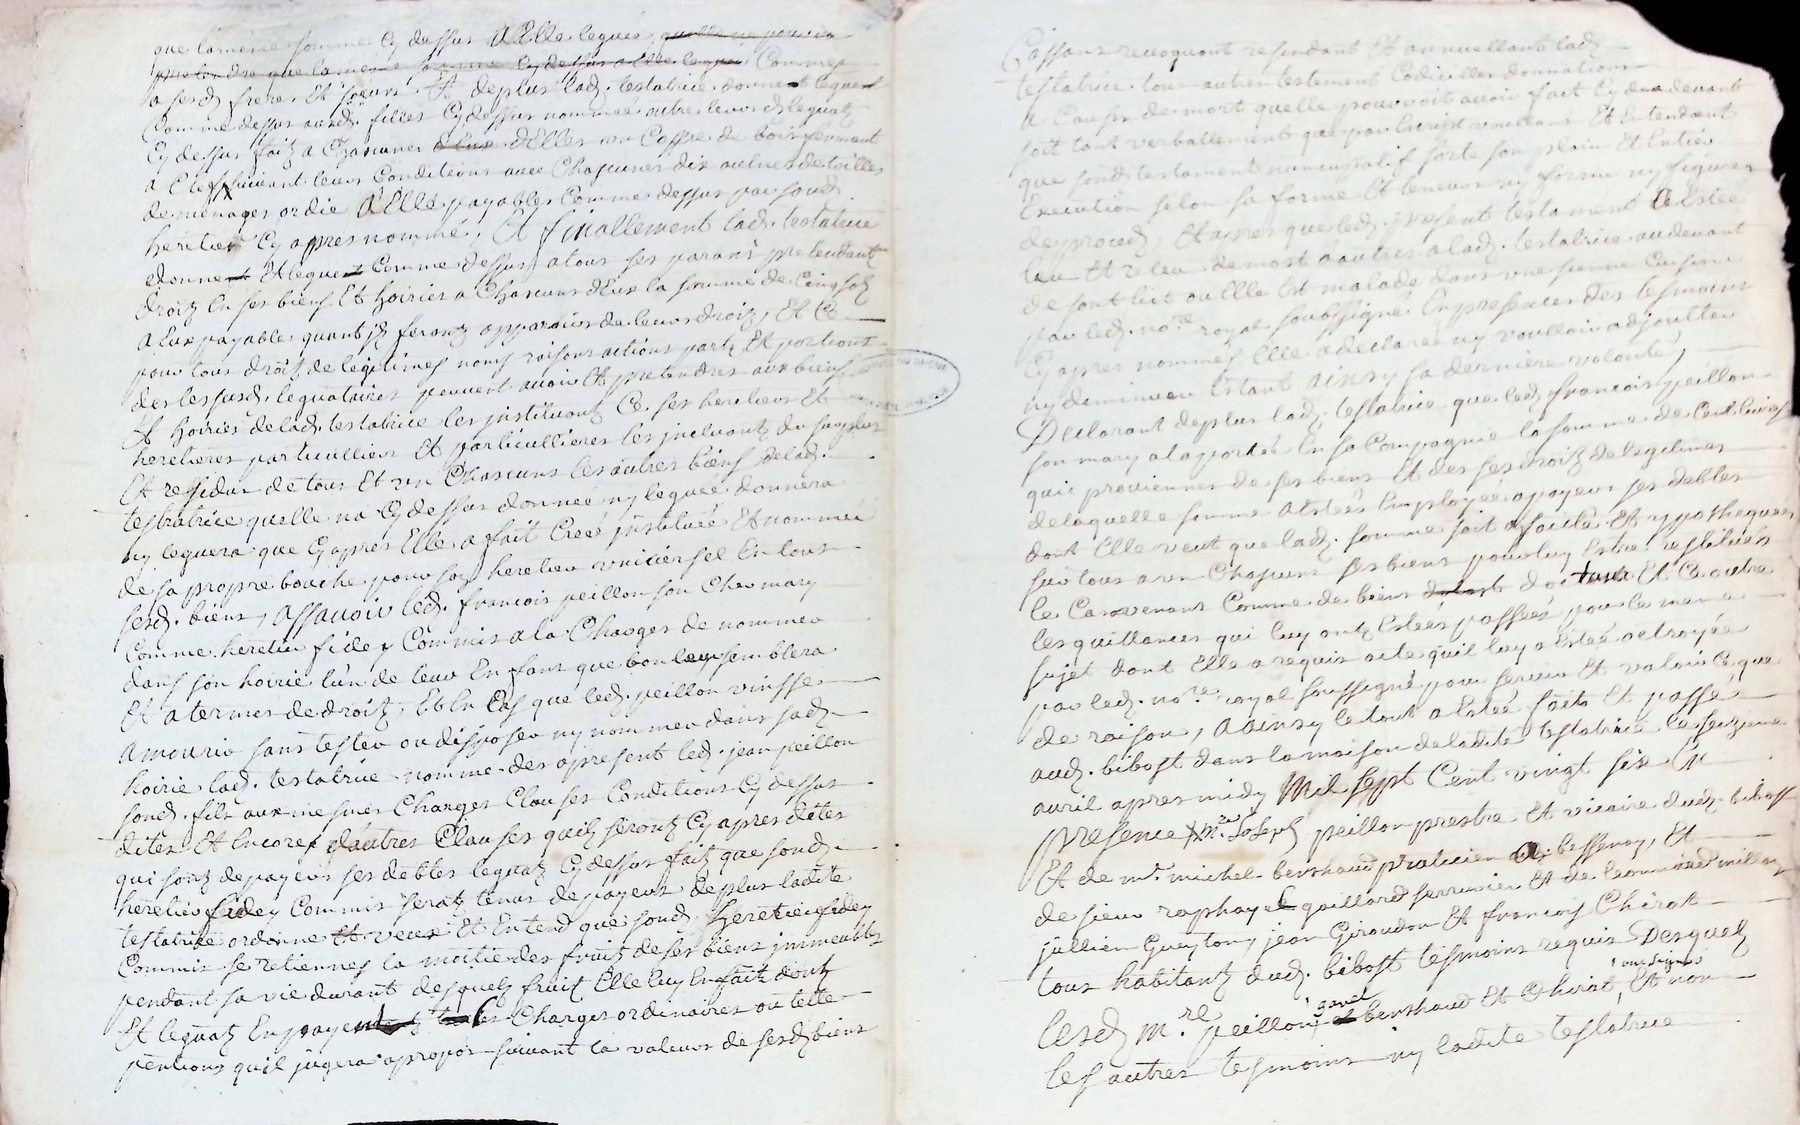 que la meme somme Cy dessus a Elle leguée, quelle ne pourra
pretendre que la meme somme Cy dessus a Elle leguée Comme
a sesd. freres Et soeurs. Et deplus lad. testatrice donne et legue
Comme dessus auxd. filles Cy dessus nommeé outre leursd. legatz
Cy dessus faitz a Chascunes d'Elles un Coffre de bois fermant
a Clef suivant leurs Conditions avec Chascunes dix aulnes de toilles
de menages ordie a Elle payables Comme dessus par sond.
heretier Cy apres nommé, Et finallement lad. testatrice
donne Et legue Comme dessus a tous ses parans pretendantz
droitz En ses biens Et hoiries a Chascuns d'Eux la somme de Cinq solz
a Eux payables quant jlz feront apparoir de leurs droitz, Et Ce
pour tous droitz de legitimes noms raisons actions partz Et portions
des lesusd. leguataires peuvent avoir Et pretendres aux biens
Et hoiries de lad. testatrice les jnstituantz Ce ses heretiers Et
heretieres particulliers Et particullieres les jncluantz du surplus
Et residus de tous Et un Chascuns les autres biens de lad.
testratrice quelle na Cy dessus donneé ny leguée donnera
ny leguera que Cy apres Elle a fait Creé jnstitué Et nommée
de sa propre bouche pour son heretier universel En tous
sesd. biens, assavoir led. francois peillon son Cher mary
Comme heretier fidey Commis a la Charges de nommer
dans son hoirie l'un de leur Enfans que bon leur semblera
Et a termes de droitz, Et En Cas que led. peillon vinsse
a mourir sans tester ou disposer ny nommer dans sad.
hoirie lad. testatrice nomme des apresent led. jean peillon
sond. fils aux mesmes Charges Clauses Conditions Cy dessus
dites Et Encores d'autres Clauses quilz seront Cy apres dites
qui sont de payers ses debtes legatz Cy dessus faitz que sond.
heretier fidey Commis seratz tenus de payers deplus ladite
testatrice ordonne Et veux Et Entend que sond. heretier fidey
Commis se retiennes la moitie des fruitz de ses biens jmmeubles
pendant sa vie durant desquelz fruit Elle luy En fait dontz
Et legatz En payent les Charges ordinaires ou telle
pentions quil jugera apropos suivant la valeurs de sesd. biens
Cassant revoquant resindant Et annuellant lad.
testatrice tous autres testement Codicilles donnations
a Causes de mort quelle pouvvoit avoir fait Cy devant
soit tant verballement que par Escript voullant Et Entendant
que sond. testament nuncupatif sorte son plain Et Entier
Execution selon sa forme Et teneurs ny forme ny figures
de proced, Et apres que led. present testament a Esteé
leu Et releu de mot a autres a lad. testatrice au devant
de sont lict ou Elle Est malade dans une sienne Cuisine
par led. nore. royal soubssigné En presences des tesmoins
Cy apres nommés Elle a declareé ny voulloir adjoutter
ny diminuer Estant ainsy sa derniere volonté,
Declarant deplus lad. testatrice que led. francois peillon
son mary a laporteé En sa Compagnie la somme de Cent livres
qui proviennes de ses biens Et des ses droitz de legitimes
delaquelle somme a Esteés Employeé a payeurs ses debtes
dont Elle veut que lad. somme soit assurés Et yppothequeés
sur tous a un Chascuns ses biens pour luy Estre restitués
le Cas avenans Comme de biens dotaux Et Ce outre
les quittances qui luy ontz Esteés passeés pour le meme
sujet dont Elle a requis acte quil luy a Esteé octroyée
par led. nore. royal soussigné pour servir Et valoir Ce que
de raison, a ainsy le tout a Esteé faits Et passé
aud. bibost dans la maison de ladite testatrice le seizieme
avril apres midy Mil Sept Cent vingt six En
presence Mre. Joseph peillon prestre Et vicaire dud. bibost
Et de mr. michel berthaud praticien de bessenay, Et
de sieur raphayel gaillard serrurier Et de leonnard millon
jullien Gueyton, jean Giraudon Et francois Chirat
tous habitantz dud. bibost tesmoins requis Desquelz
ont signés
lesd. mre. peillon, berthaud Et Chirat, Et non
les autres tesmoins ny ladite testatrice